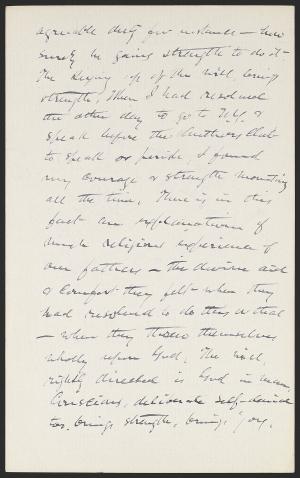 agreeable duty for instance — how
surely he gains strength to do it.
The keying up of the will brings
strength. When I had resolved
the other day to go to N.Y. &
speak before the Authors Club
to speak or perish, I found
my courage & strength mounting
all the time. There is in this
fact an explanation of
much religious experience of
our fathers — the divine aid
& comfort they felt when they
had resolved to do this or that
— when they threw themselves
wholly upon God. The will,
rightly directed is God in man.
Christians, deliberate self-denial
too, brings strength, brings joy,